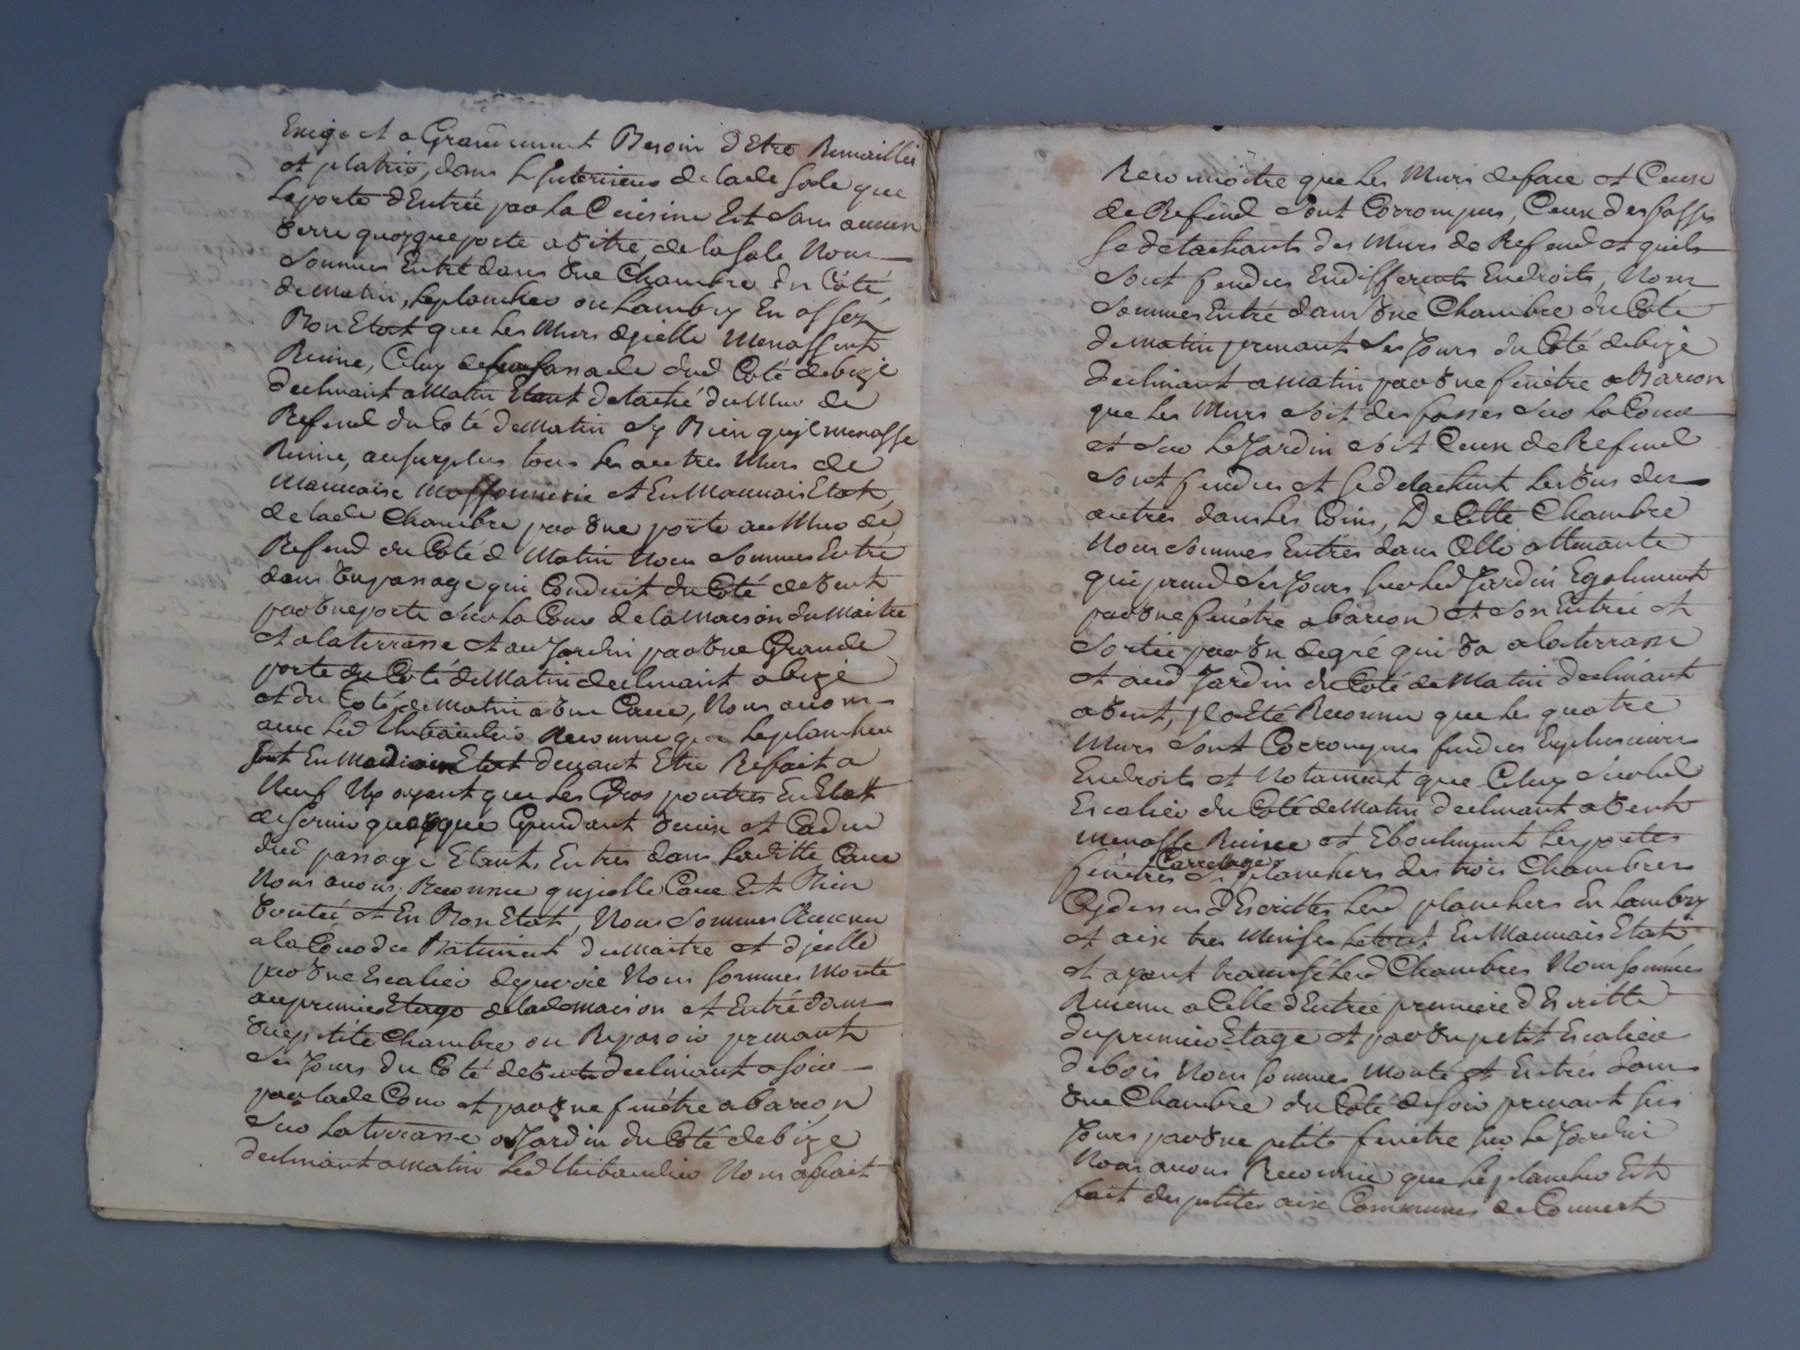 Exige et a Grandement Besoin d'Etre Remaillié
et platrio, dans L'Jnterieur de lade Sale que
La porte d'Entrée par La Cuisine Est Sans aucun
verre quoyque porte a vitre, de la Sale Nous
Sommes Entré dans vne Chambre du Coté
de Matin, Le plancher ou Lambry En assez
Bon Etat que Les Murs dyielle Menassent
Ruine, Celuy de Sa fassade dud Coté de bize
declinant a Matin Etant detaché du Mur de
Refend du Coté de Matin Sy Bien quyl menasse
Ruine, au surplus tous Les autres Murs de
Mauvaise Massonnerie et En Mauvais Etat,
de lade Chambre par vne porte au Mur de
Refend du Coté de Matin Nous Sommes Entré
dans vn passage qui Conduit du Coté de vent
par vne porte Sur La Cour de la Maison du Maitre
et a la terrasse et au Jardin par vne Grande
porte du Coté de Matin declinant a bizé
et du Coté de Matin a vne Cave, Nous avons
avec Led Thibaudier Reconnu que Le plancher
Est En Etat devant Etre Refait a
Neuf Ny ayant que Les Gros poutres En Etat
de Servir quoyque Cependant vieux et Cadue
dud passage Etants Entrés dans Laditte Cave
Nous avons Reconnu quyielle Cave Est Bien
voutée et En Bon Etat, Nous Sommes Revenu
a la Cour du Batiment du Maitre et dyielle
par vne Escalier de pierre Nous Sommes Monté
au premier Etage de lade maison et Entré dans
vne petite Chambre ou Reposoir prenant
Ses Jours du Coté de vent declinant a Soir
par lade Cour et par vne fenétre a bareon
Sur La terrasse o Jardin du Coté de bize
declinant a Matin Led Thibaudier Nous a fait
Reconnoitre que Les Murs de face et Ceux
de Refend Sont Corrompus, Ceux des fasses
Se detachants des Murs de Refend et quils
Sont fendus En differents Endroits, Nous
Sommes Entré dans vne Chambre du Coté
de matin prenant Ses Jours du Coté de bize
declinant a matin par vne fenétre a Bareon
que Les Murs Soit des fasses Sur La Cour
et Sur Le Jardin Soit Ceux de Refend
Sont fendus et Se detachent Les vns des
autres dans Les Coins, De Cette Chambre
Nous Sommes Entrés dans Celle attenante
qui prend Ses Jours Sur Led Jardin Egalement
par vne fenétre a bareon et Son Entrée et
Sortie par vn degré qui va a la terrasse
et aud Jardin du Coté de Matin declinant
a vent, Jl a Eté Reconnu que Les quatre
Murs Sont Corrompus fendus En plusieurs
Endroits et Notament que Celuy Sur Led
Escalier du Coté de Matin declinant a vent
Menasse Ruinee et Eboulement Les portes
Carrelages
fenétres et planchers des trois Chambres
Cydessus d'Escrittes Led planchers En Lambry
et aix tres Le tout En Mauvais Etat
et ayant traversé Led Chambres Nous Sommes
Revenu a Celle d'Entrée premiere d'Escritte
du premier Etage et par vn petit Escalier
de bois Nous Sommes Monté et Entrés dans
vne Chambre du Coté de Soir prenant Ses
Jours par vne petite fenétre Sur Le Jardin
Nous avons Reconnu que Le plancher Est
fait des petites aix Communes de Couvert